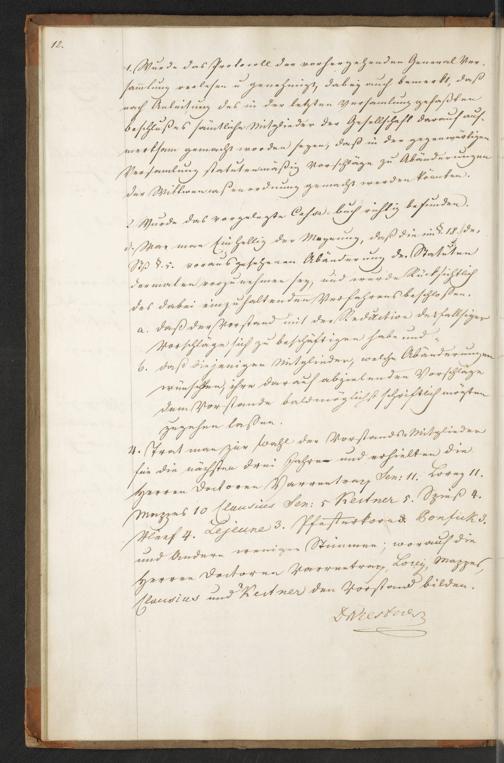 12.
1. Wurde das Protocoll der vorhergehenden General Ver-
samlung verlesen u genehmigt, dabey auch bemerkt, daß
nach Anleitung des in der letzten Versamlung gefaßten
Beschlußes sämtliche Mitglieder der Gesellschaft darauf auf-
merksam gemacht worden seyen, daß in der gegenwärtigen
Versamlung statutenmäßig Vorschläge zu Abänderungen
der Wittwencassenordnung gemacht werden könnten.
2. Wurde das vorgelegte Cassabuch richtig befunden.
3. War man Einhellig der Meynung, daß die im §. 18. der
§. 5. vorausgesehenen Abänderung der Statuten
dermalen vorzunehmen sey, und wurde Rücksichtlich
des dabei einzuhaltenden Verfahrens beschlossen.
a. daß der Vorstand mit der Redaction desfallsiger
Vorschläge sich zu beschäftigen habe und
b. daß diejenigen Mitglieder, welche Abänderungen
wünschen, ihre darauf abzielenden Vorschläge
dem Vorstande baldmöglichst schriftlich mögten
zugehen lassen.
4. Trat man zur Wahl der Vorstands Mitglieder
für die nächsten drei Jahre und erhielten die
Herren Doctoren Varrentrap Sen: 11. Lorey 11.
Mappes 10 Clausius Sen: 5 Kestner 5. Spieß 4.
4. Lejeune 3. Pfefferkorn 3. Bonfick 3.
und Andere wenigen Stimmen; worauf die
Herren Doctoren Varrentrap, Lorey, Mappes,
Clausius und Kestner den Vorstand bilden.
Dr Kestner